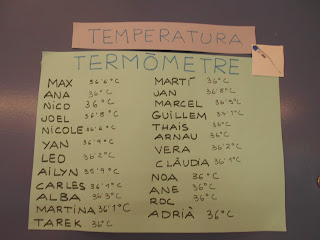 TEMPERATURA
TERMÒMETRE
MAX 36'6°C
ANA 36°C
NICO 36°C
JOEL 36'8°C
NICOLE 36'6°C
YAN 36'9°C
LEO 36'2°C
AILYN 35'9°C
CARLES 36'1°C
ALBA 36'3°C
MARTINA 36'1°C
TAREK 36°C
MARTÍ 36°C
JAN 36'8°C
MARCEL 36'5°C
GUILLEM 37'1°C
THAIS 36°C
ARNAU 36°C
VERA 36'2°C
CLÀUDIA 36'1°C
NOA 36°C
ANE 36°C
ROC 36°C
ADRIÀ 36°C